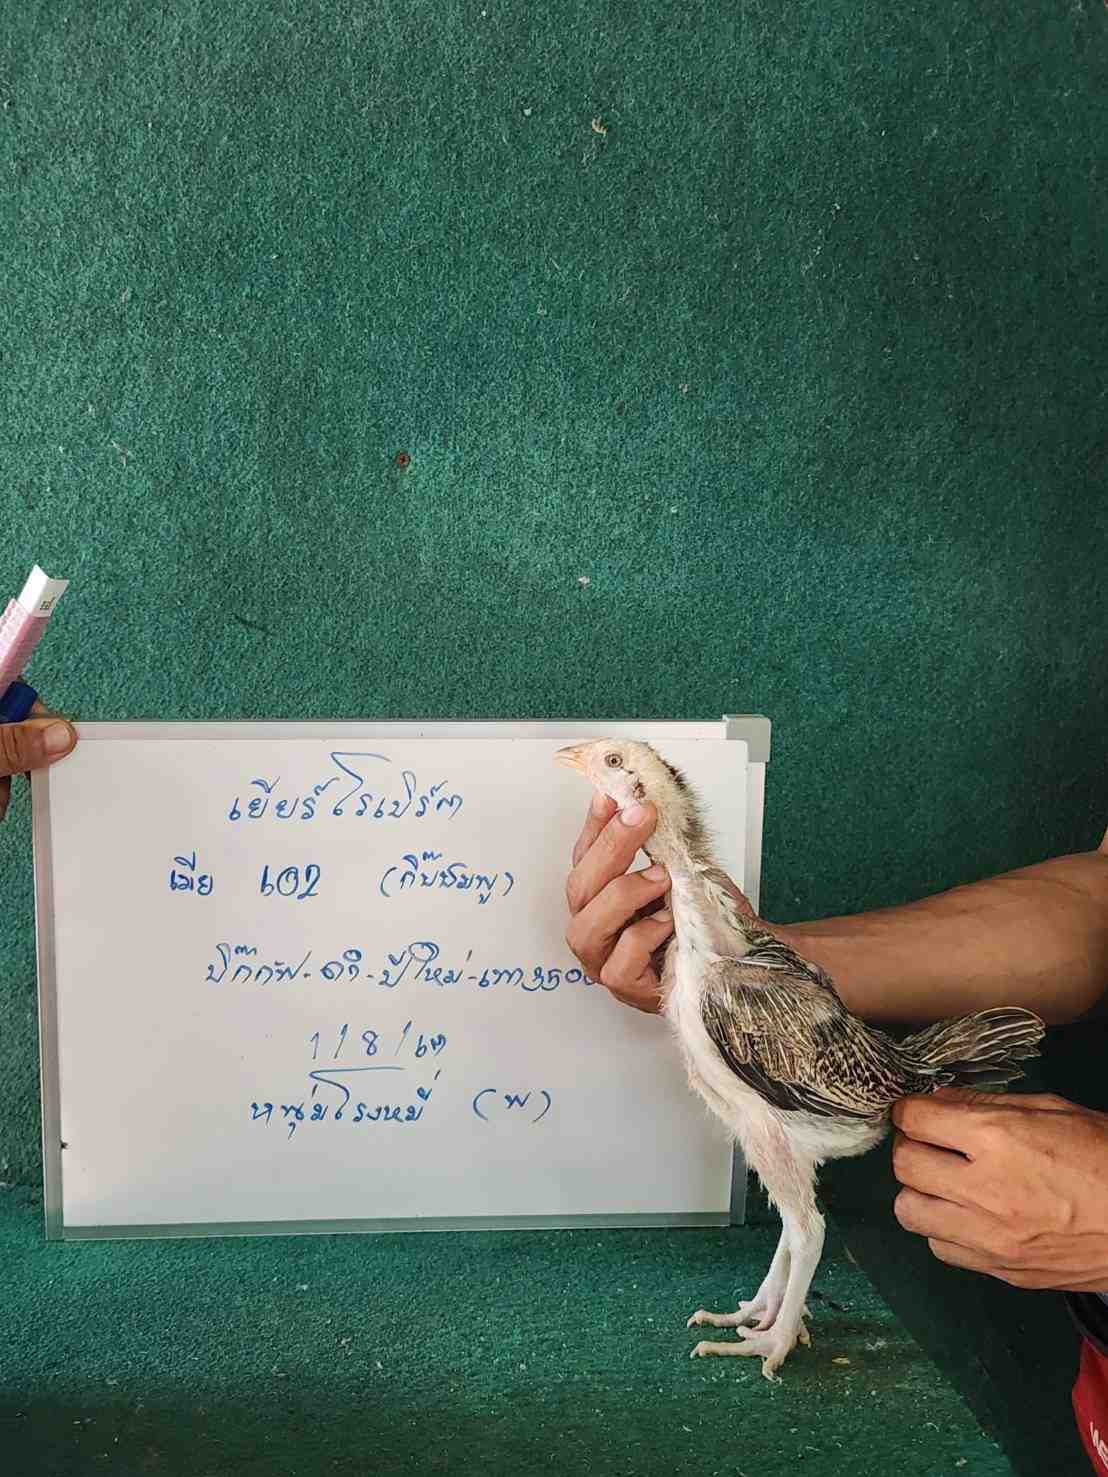 เยียร์โรเบิร์ต
เมีย เ02 (กิ๊บชมพู)
บิ๊กกัฟ-ดำ-ปีใหม่-เทา3500
1/8/
หนุ่มโรงหมี่ (พ)